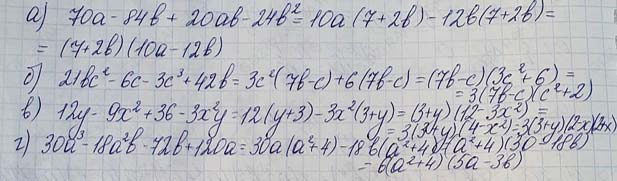 а) 70a-84b+20ab-24b²=10a(7+2b)-12b(7+2b)=
=(7+2b)(10a-12b)
б) 21bc²-6c-3c³+42b=3c²(7b-c)+6(7b-c)=(7b-c)(3c²+6)=
=3(7b-c)(c²+2)
в) 12y-9x²+36-3x²y=12(y+3)-3x²(3+y)=(3+y)(12-3x²)=
=3(3+y)(4-x²)=3(3+y)(2-x)(2+x)
г) 30a³-18a²b-72b+120a=30a(a²+4)-18b(a²+4)=(a²+4)(30-18b)
=6(a²+4)(5a-3b)